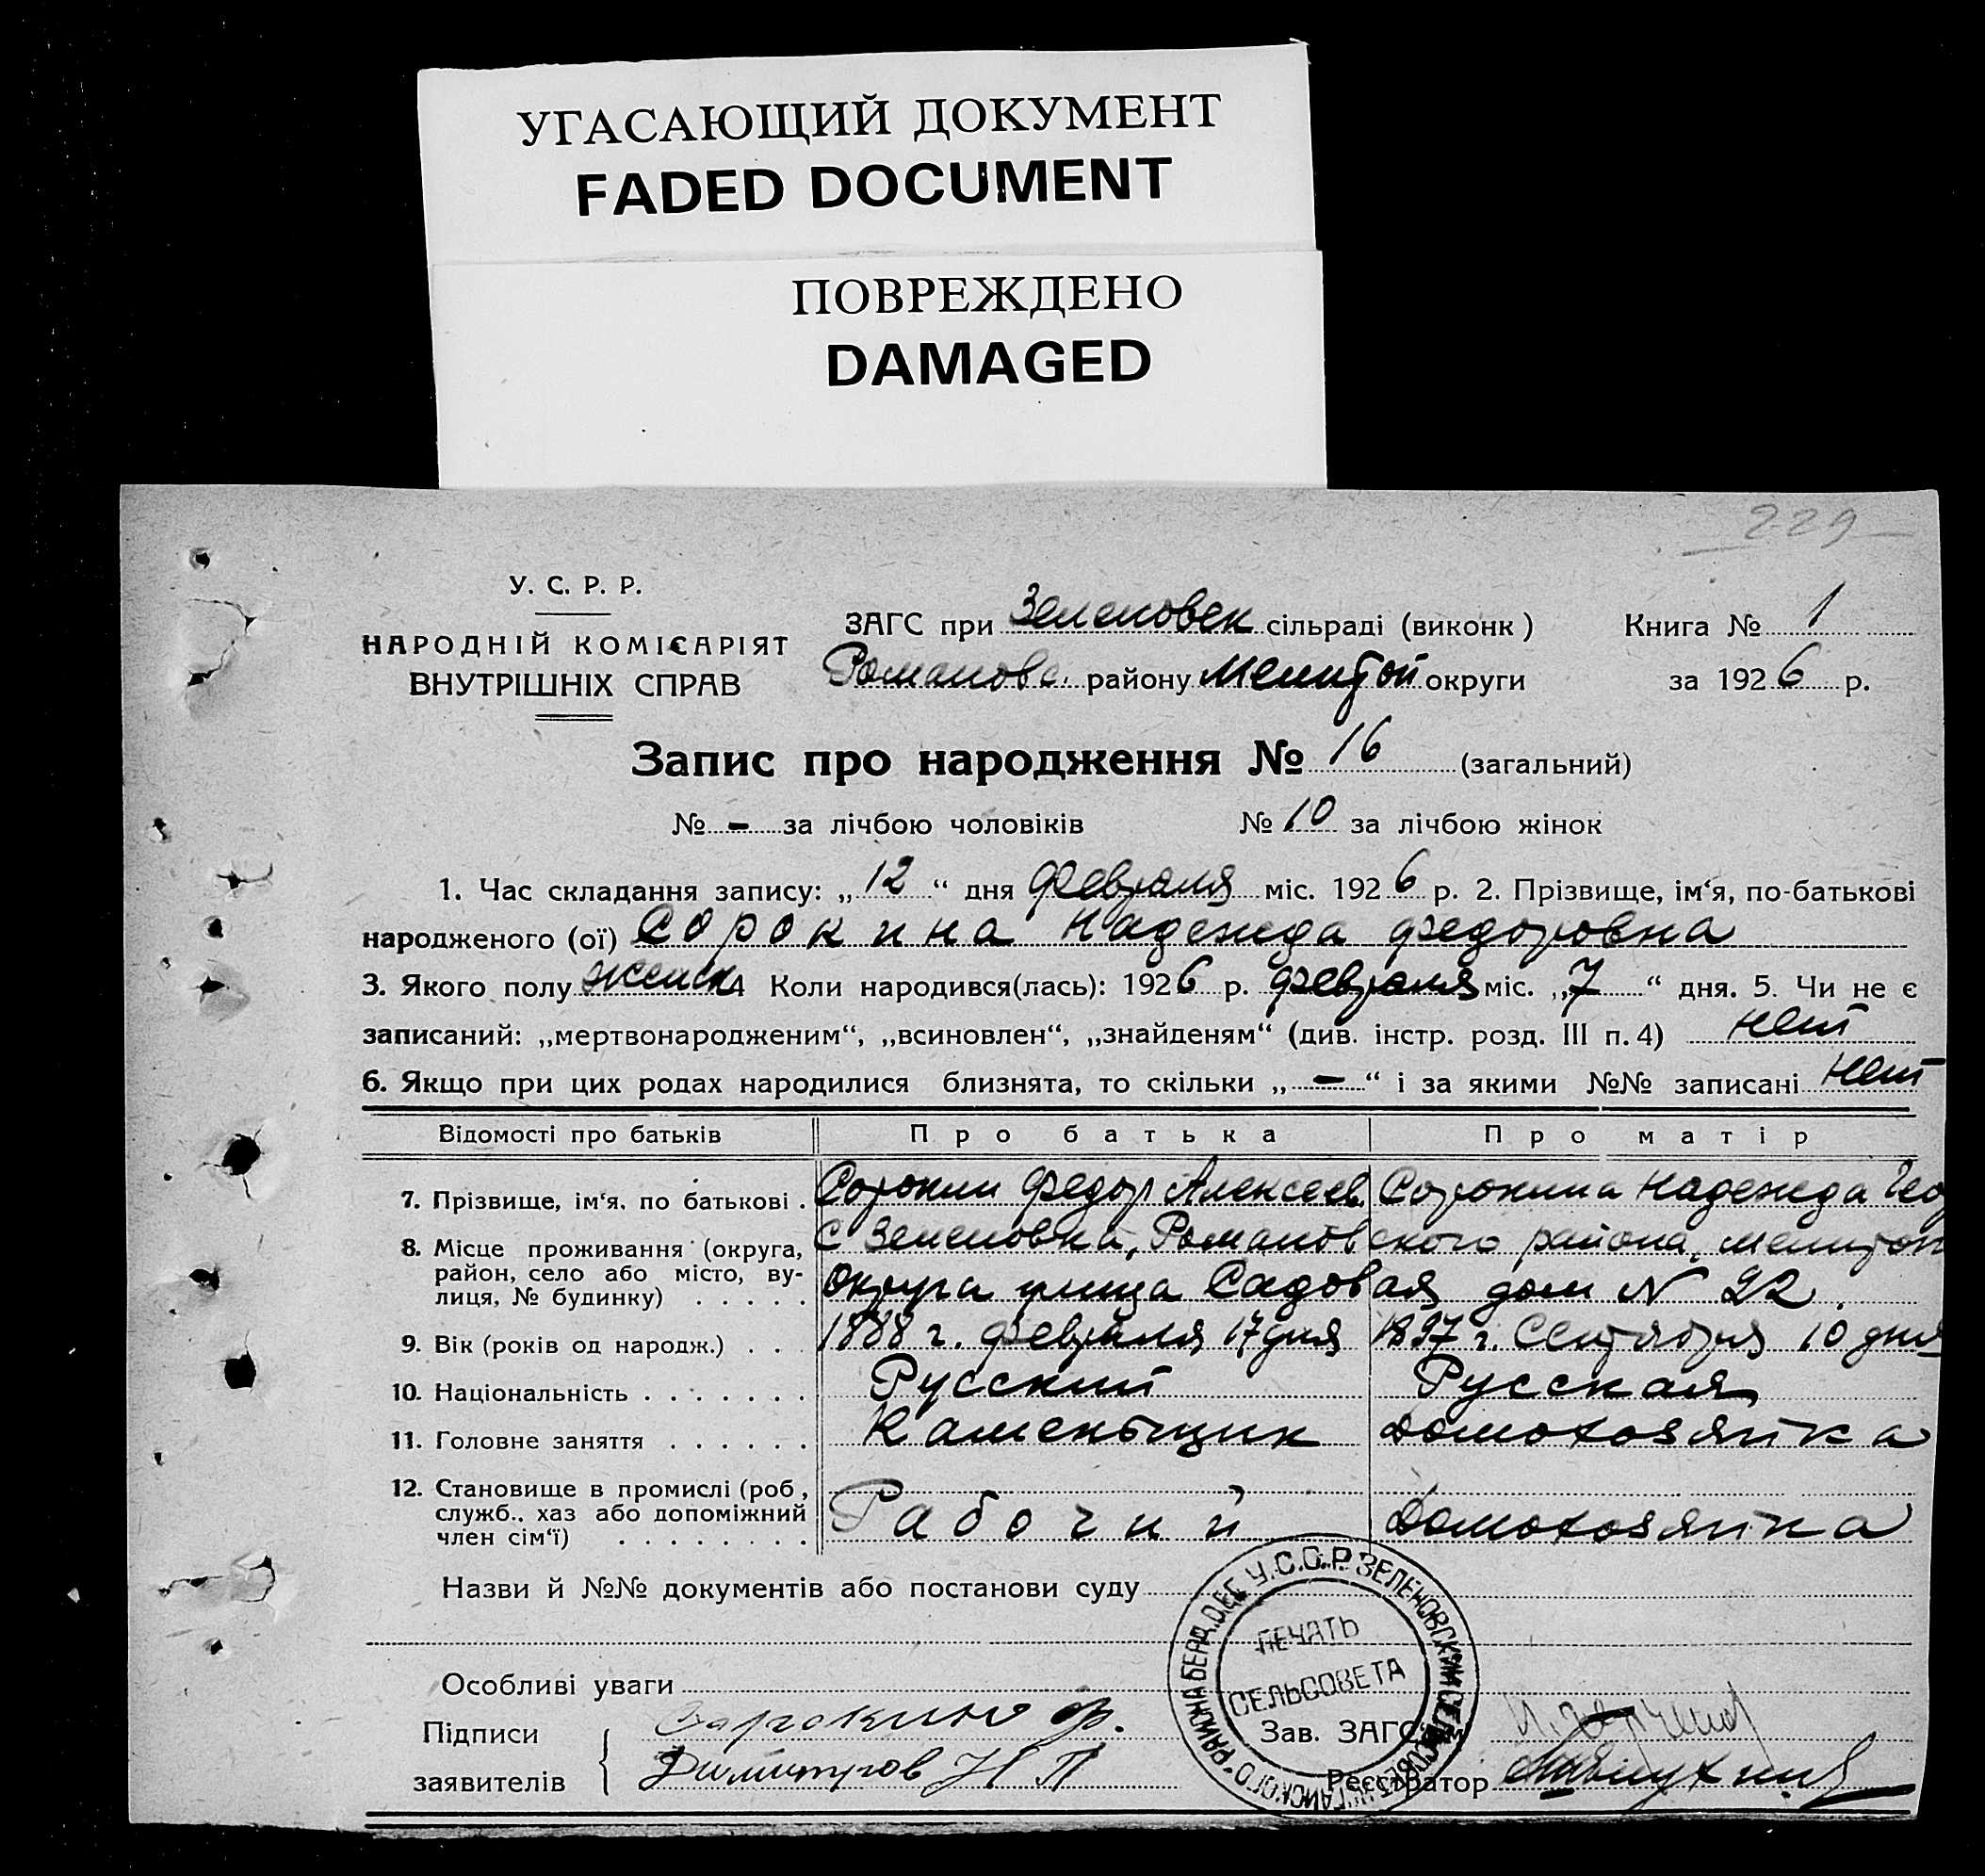 УГАСАЮЩИЙ ДОКУМЕНТ
FADED DOCUMENT
ПОВРЕЖДЕНО
DAMAGED
229
У. С. Р. Р.
НАРОДНІЙ КОМІСАРІЯТ
ВНУТРІШНІХ СПРАВ
ЗАГС при Зеленовск сільраді (виконк)
Романовс. району Мелитой округи
Книга № 1
за 1926 р.
Запис про народження № 16 (загальний)
№ - за лічбою чоловіків № 10 за лічбою жінок
1. Час складання запису: „12“ дня февраля міс. 1926 р. 2. Прізвище, ім‘я, по-батькові
народженого (ої) Сорокина Надежда Федоровна
3. Якого полу женск 4 Коли народився(лась): 1926 р. февраля міс. „7“ дня. 5. Чи не є
записаний: „мертвонародженим“, „всиновлен“, „знайденям“ (див. інстр. розд. III п. 4) нет
6. Якщо при цих родах народилися близнята, то скільки „-“ і за якими №№ записані нет
Відомості про батьків Про батька Про матір
7. Прізвище, ім‘я, по батькові . Сорокин Федор Алексеев Сорокина Надежда Гео
8. Місце проживання (округа, район, село або місто, вулиця, № будинку) . . . . .
С Зеленовка, Романовского района, мелитоп
округа улица Садовая дом N 22.
9. Вік (років од народж.) . . . 1888 г. февраля 17 дня 1897 г. Сентября 10 дня
10. Національність . . . . . . . Русский Русская
11. Головне заняття . . . . . . Каменьщик Домохозяйка
12. Становище в промислі (роб., служб., хаз або допоміжний член сім‘ї) . . . . . . . . Рабочий Домохозяйка
Назви й №№ документів або постанови суду
Особливі уваги
ПЕЧАТЬ
СЕЛЬСОВЕТА
У.С.С.Р. ЗЕЛЕНОВСКИЙ СЕЛЬСОВЕТ
РАЙОНА БЕРД.
Підписи
заявителів
Сорокин Ф.
Димитров Н П
Зав. ЗАГСом
Реєстратор